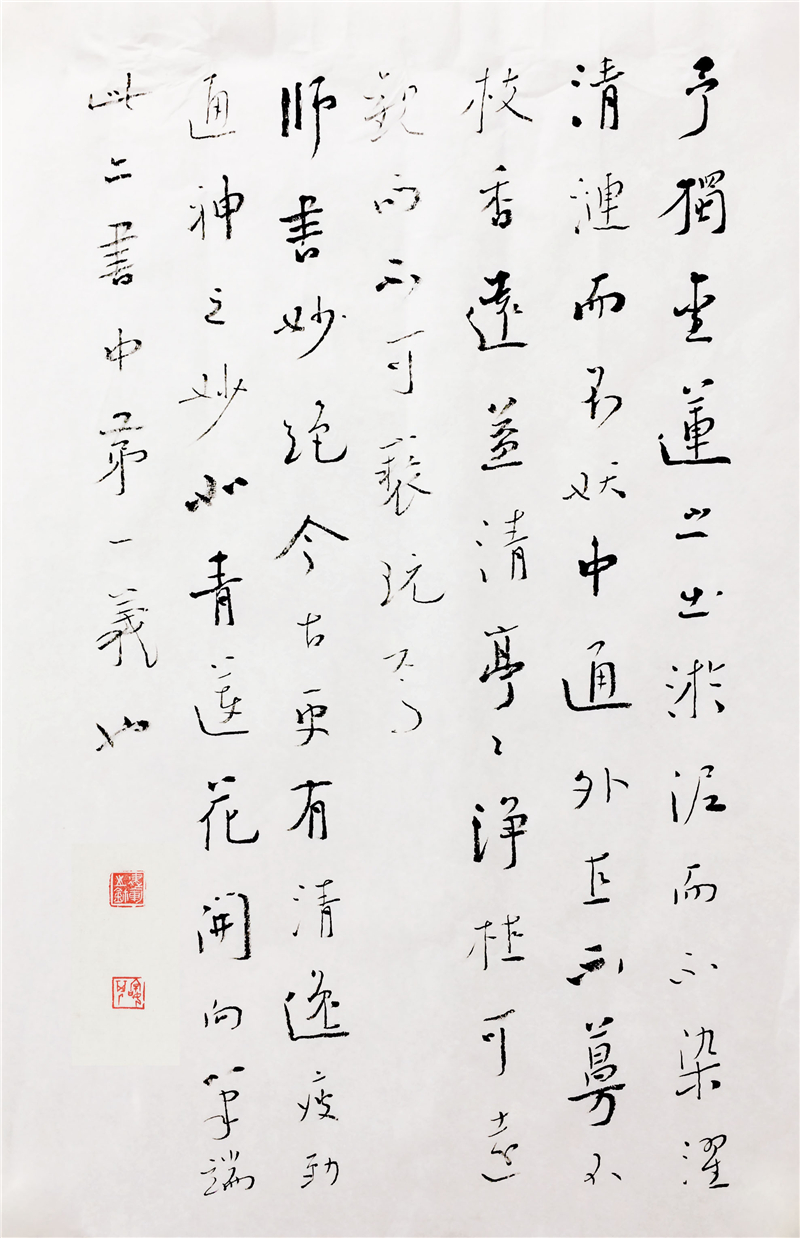 予獨愛蓮之出淤泥而不染濯
清漣而不妖中通外直不蔓不
枝香遠益清亭亭淨植可遠
觀而不可褻玩焉
師書妙絕今古更有清逸疲勁
通神之妙如青蓮花開向筆端
此亦書中第一義也